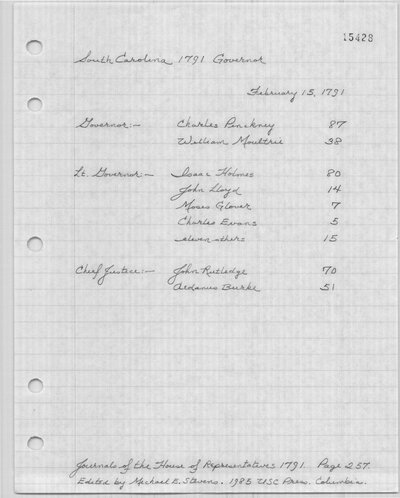 15428
South Carolina 1791 Governor
February 15, 1791
Governor:- Charles Pinckney 87
William Moultrie 38
Lt. Governor:- Isaac Holmes 80
John Lloyd 14
Moses Glover 7
Charles Evans 5
eleven others 15
Chief Justice:- John Rutledge 70
Aedanus Burke 51
Journals of the House of Representatives 1791. Page 257.
Edited by Michael E. Stevens. 1985 USC Press. Columbia.